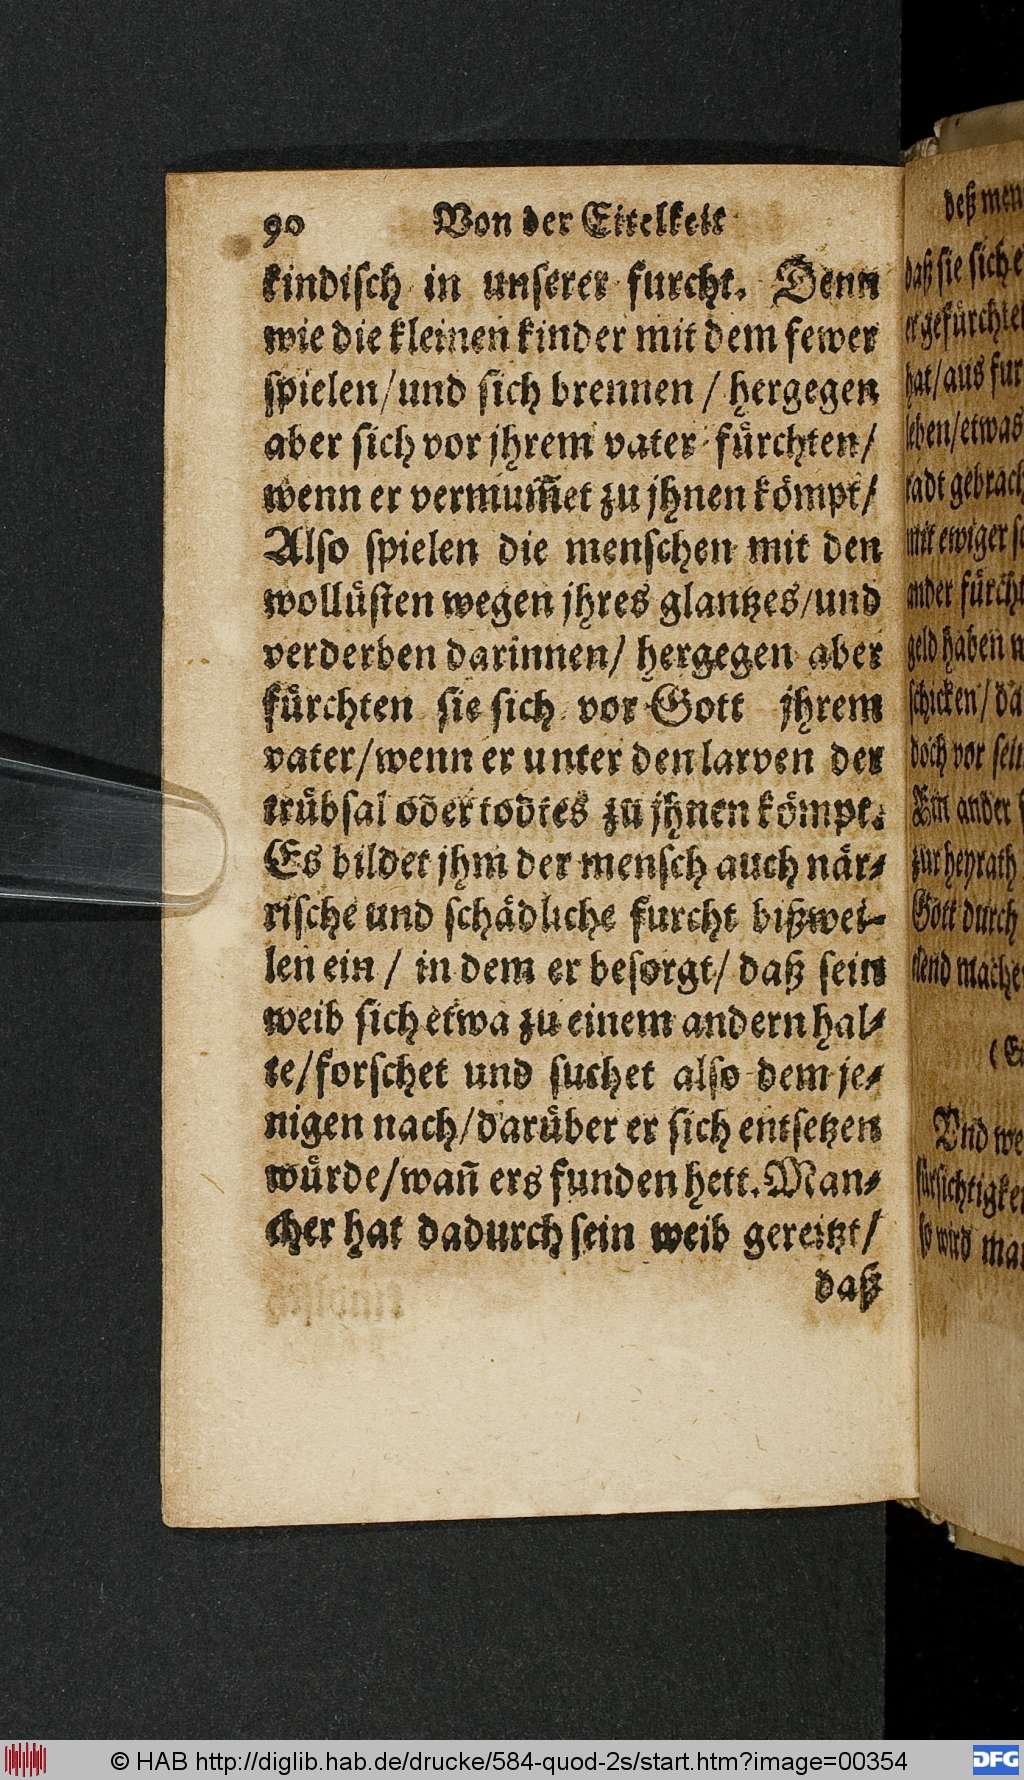 90 Von der Eitelkeit
kindisch in unserer furcht. Denn
wie die kleinen kinder mit dem fewer
spielen/und sich brennen / hergegen
aber sich vor jhrem vater fürchten/
wenn er vermum̄et zu jhnen kömpt/
Also spielen die menschen mit den
wollüsten wegen jhres glantzes/und
verderben darinnen/ hergegen aber
fürchten sie sich vor Gott jhrem
vater/wenn er unter den larven der
trübsal oder todtes zu jhnen kömpt.
Es bildet jhm der mensch auch när-
rische und schädliche furcht bißwei-
len ein / in dem er besorgt/ daß sein
weib sich etwa zu einem andern hal-
te/forschet und suchet also dem je-
nigen nach/darüber er sich entsetzen
würde/wañ ers funden hett. Man-
cher hat dadurch sein weib gereitzt/
daß
deß men
daß sie sich e
er gefürchtet
hat/aus fur
leben/etwas
radt gebrach
mit ewiger sc
ander fürcht
geld haben
schicken/ da
doch vor sein
Ein ander
zur heyrath
Gott durch
elend mache
Vnd we
fürsichtigkei
so wird man
© HAB http://diglib.hab.de/drucke/584-quod-2s/start.htm?image=00354
DFG